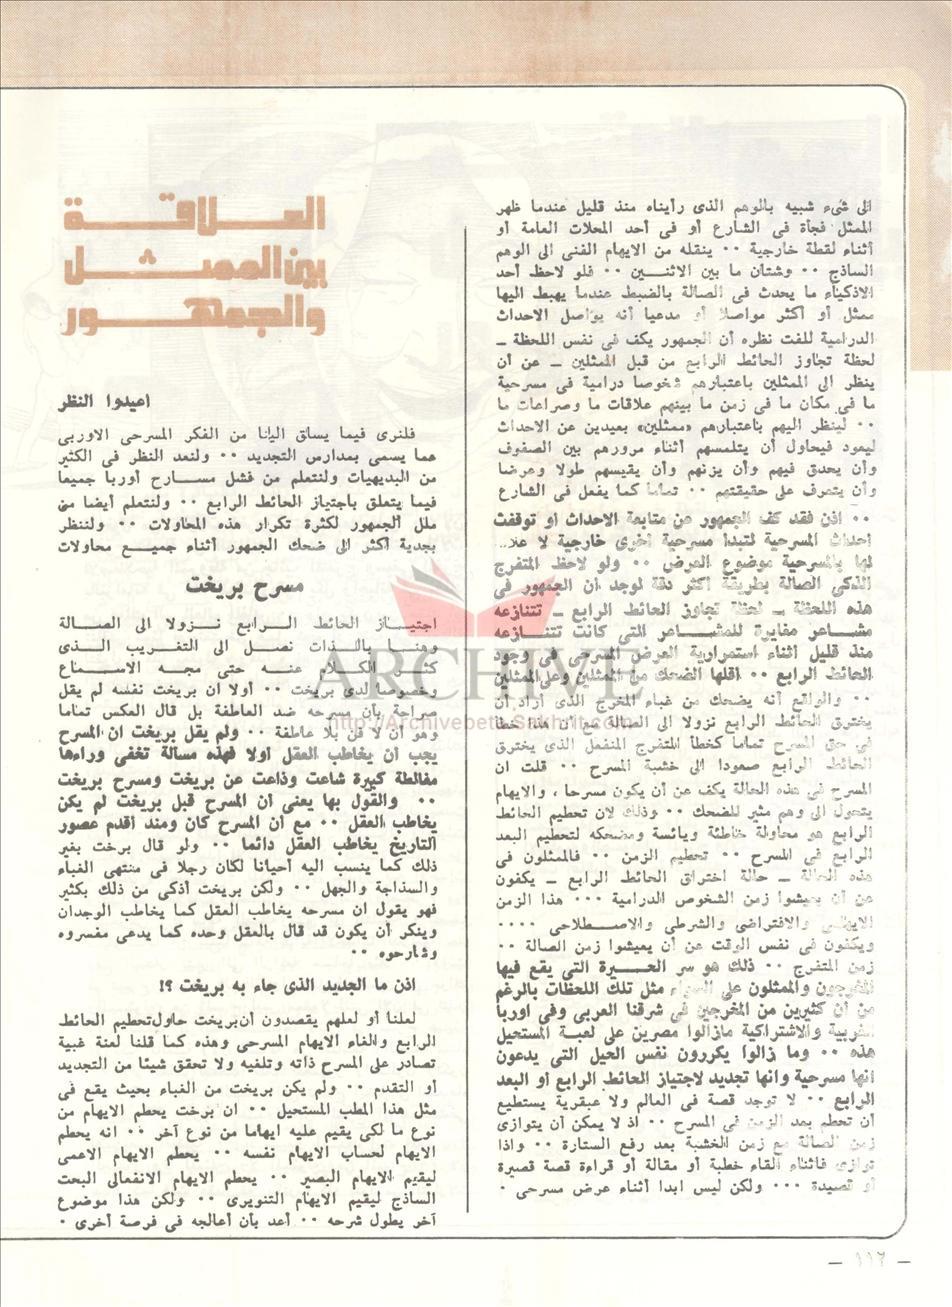 الى شىء شبيه بالوهم الذى رأيناه منذ قليل عندما ظهر
الممثل فجأة فى الشارع أو فى أحد المحلات العامة أو
أثناء لقطة خارجية ٠٠ ينقله من الايهام الفنى الى الوهم
الساذج ٠٠ وشتان ما بين الاثنـــين ٠٠ فلو لاحظ أحد
الاذكياء ما يحدث فى الصالة بالضبط عندما يهبط اليها
ممثل أو أكثر مواصلا أو مدعيا أنه يواصل الاحداث
الدرامية للفت نظره أن الجمهور يكف فى نفس اللحظة ــ
لحظة تجاوز الحائط الرابع من قبل الممثلين ــ عن أن
ينظر الى الممثلين باعتبارهم شخوصا درامية فى مسرحية
ما فى مكان ما فى زمن ما بينهم علاقات ما وصراعات ما
٠٠ لينظر اليهم باعتبارهم «ممثلين» بعيدين عن الاحداث
ليعود فيحاول أن يتلمسهم أثناء مرورهم بين الصفوف
وأن يحدق فيهم وأن يزنهم وأن يقيسهم طولا وعرضا
وأن يتعرف على حقيقتهم ٠٠ تماما كما يفعل فى الشارع
٠٠ اذن فقد كف الجمهور عن متابعة الاحداث او توقفت
احداث المسرحية لتبدا مسرحية أخرى خارجية لا علاقة
لها بالمسرحية موضوع العرض ٠٠ ولو لاحظ المتفرج
الذكى الصالة بطريقة اكثر دقة لوجد أن الجمهور فى
هذه اللحظة ــ لحظة تجاوز الحائط الرابع ــ تتنازعه
مشـــاعر مغايرة للمشـــاعر التى كانت تتنـــازعه
منذ قليل اثناء استمرارية العرض المسرحى فى وجود
الحائط الرابع ٠٠ اقلها الضحك من الممثلين وعلى الممثلين
٠٠ والواقع أنه يضحك من غباء المخرج الذى أراد أن
يخترق الحائط الرابع نزولا الى الصالة مع أن هذا خطأ
فى حق المسرح تماما كخطأ المتفرج المنفعل الذى يخترق
الحائط الرابع صعودا الى خشبة المسرح ٠٠ قلت ان
المسرح فى هذه الحالة يكف عن أن يكون مسرحا ، والايهام
يتحول الى وهم مثير للضحك ٠٠ وذلك لان تحطيم الحائط
الرابع هو محاولة خاطئة ويائسة ومضحكة لتحطيم البعد
الرابع فى المسرح ٠٠ تحطيم الزمن ٠٠ فالممثلون فى
هذه الحالة ــ حالة اختراق الحائط الرابع ــ يكفون
عن أن يعيشوا زمن الشخوص الدرامية ٠٠٠ هذا الزمن
الايهامى والافتراضى والشرطى والاصـــطلاحى ٠٠٠٠
ويكفون فى نفس الوقت عن أن يعيشوا زمن الصالة ٠٠
زمن المتفرج ٠٠ ذلك هو سر الحـــيرة التى يقع فيها
المخرجون والممثلون على السواء مثل تلك اللحظات بالرغم
من أن كثيرين من المخرجين فى شرقنا العربى وفى اوربا
الغربية والاشتراكية مازالوا مصرين على لعبة المستحيل
هذه ٠٠ وما زالوا يكررون نفس الحيل التى يدعون
انها مسرحية وانها تجديد لاجتياز الحائط الرابع أو البعد
الرابع ٠٠ لا توجد قصة فى العالم ولا عبقرية يستطيع
أن تحطم بعد الزمن فى المسرح ٠٠ اذ لا يمكن أن يتوازى
زمن الصالة مع زمن الخشبة بعد رفع الستارة ٠٠ واذا
توازى فاثناء القاء خطبة أو مقالة أو قراءة قصة قصيرة
أو قصيدة ٠٠٠ ولكن ليس ابدا أثناء عرض مسرحى ٠
العـــلاقـــة
بين الممـــثـــل
والجمهـــور
اعيدوا النظر
فلنرى فيما يساق الينا من الفكر المسرحى الاوربى
عما يسمى بمدارس التجديد ٠٠ ولنعد النظر فى الكثير
من البديهيات ولنتعلم من فشل مســـارح أوربا جميعا
فيما يتعلق باجتياز الحائط الرابع ٠٠ ولنتعلم أيضا من
ملل الجمهور لكثرة تكرار هذه المحاولات ٠٠ ولننظر
بجدية أكثر الى ضحك الجمهور أثناء جميـــع محاولات
مسرح بريخت
اجتيـــاز الحائط الـــرابع نـــزولا الى الصـــالة
وهنـــا بالـــذات نصـــل الى التغـــريب الـــذى
كثـــر الكـــلام عنـــه حتى مجـــه الاســـماع
وخصوصا لدى بريخت ٠٠ أولا ان بريخت نفسه لم يقل
صراحة بأن مسرحه ضد العاطفة بل قال العكس تماما
وهو أن لا فن بلا عاطفة ٠٠ ولم يقل بريخت ان المسرح
يجب ان يخاطب العقل اولا فهذه مسالة تخفى وراءها
مغالطة كبيرة شاعت وذاعت عن بريخت ومسرح بريخت
٠٠ والقول بها يعنى أن المسرح قبل بريخت لم يكن
يخاطب العقل ٠٠ مع أن المسرح كان ومنذ أقدم عصور
التاريخ يخاطب العقل دائما ٠٠ ولو قال برخت بغير
ذلك كما ينسب اليه أحيانا لكان رجلا فى منتهى الغباء
والسذاجة والجهل ٠٠ ولكن بريخت أذكى من ذلك بكثير
فهو يقول ان مسرحه يخاطب العقل كما يخاطب الوجدان
وينكر أن يكون قد قال بالعقل وحده كما يدعى مفسروه
وشارحوه ٠٠
اذن ما الجديد الذى جاء به بريخت ؟!
لعلنا أو لعلهم يقصدون أن بريخت حاول تحطيم الحائط
الرابع والغاء الايهام المسرحى وهذه كما قلنا لعنة غبية
تصادر على المسرح ذاته وتلغيه ولا تحقق شيئا من التجديد
أو التقدم ٠٠ ولم يكن بريخت من الغباء بحيث يقع فى
مثل هذا المطب المستحيل ٠٠ ان برخت يحطم الايهام من
نوع ما لكى يقيم عليه ايهاما من نوع آخر ٠٠ انه يحطم
الايهام لحساب الايهام نفسه ٠٠ يحطم الايهام الاعمى
ليقيم الايهام البصير ٠٠ يحطم الايهام الانفعالى البحت
الساذج ليقيم الايهام التنويرى ٠٠ ولكن هذا موضوع
آخر يطول شرحه ٠٠ أعد بأن أعالجه فى فرصة أخرى ٠
ARCHIVE
http://Archivebeta.Sakhrit.com
— ١١٦ —